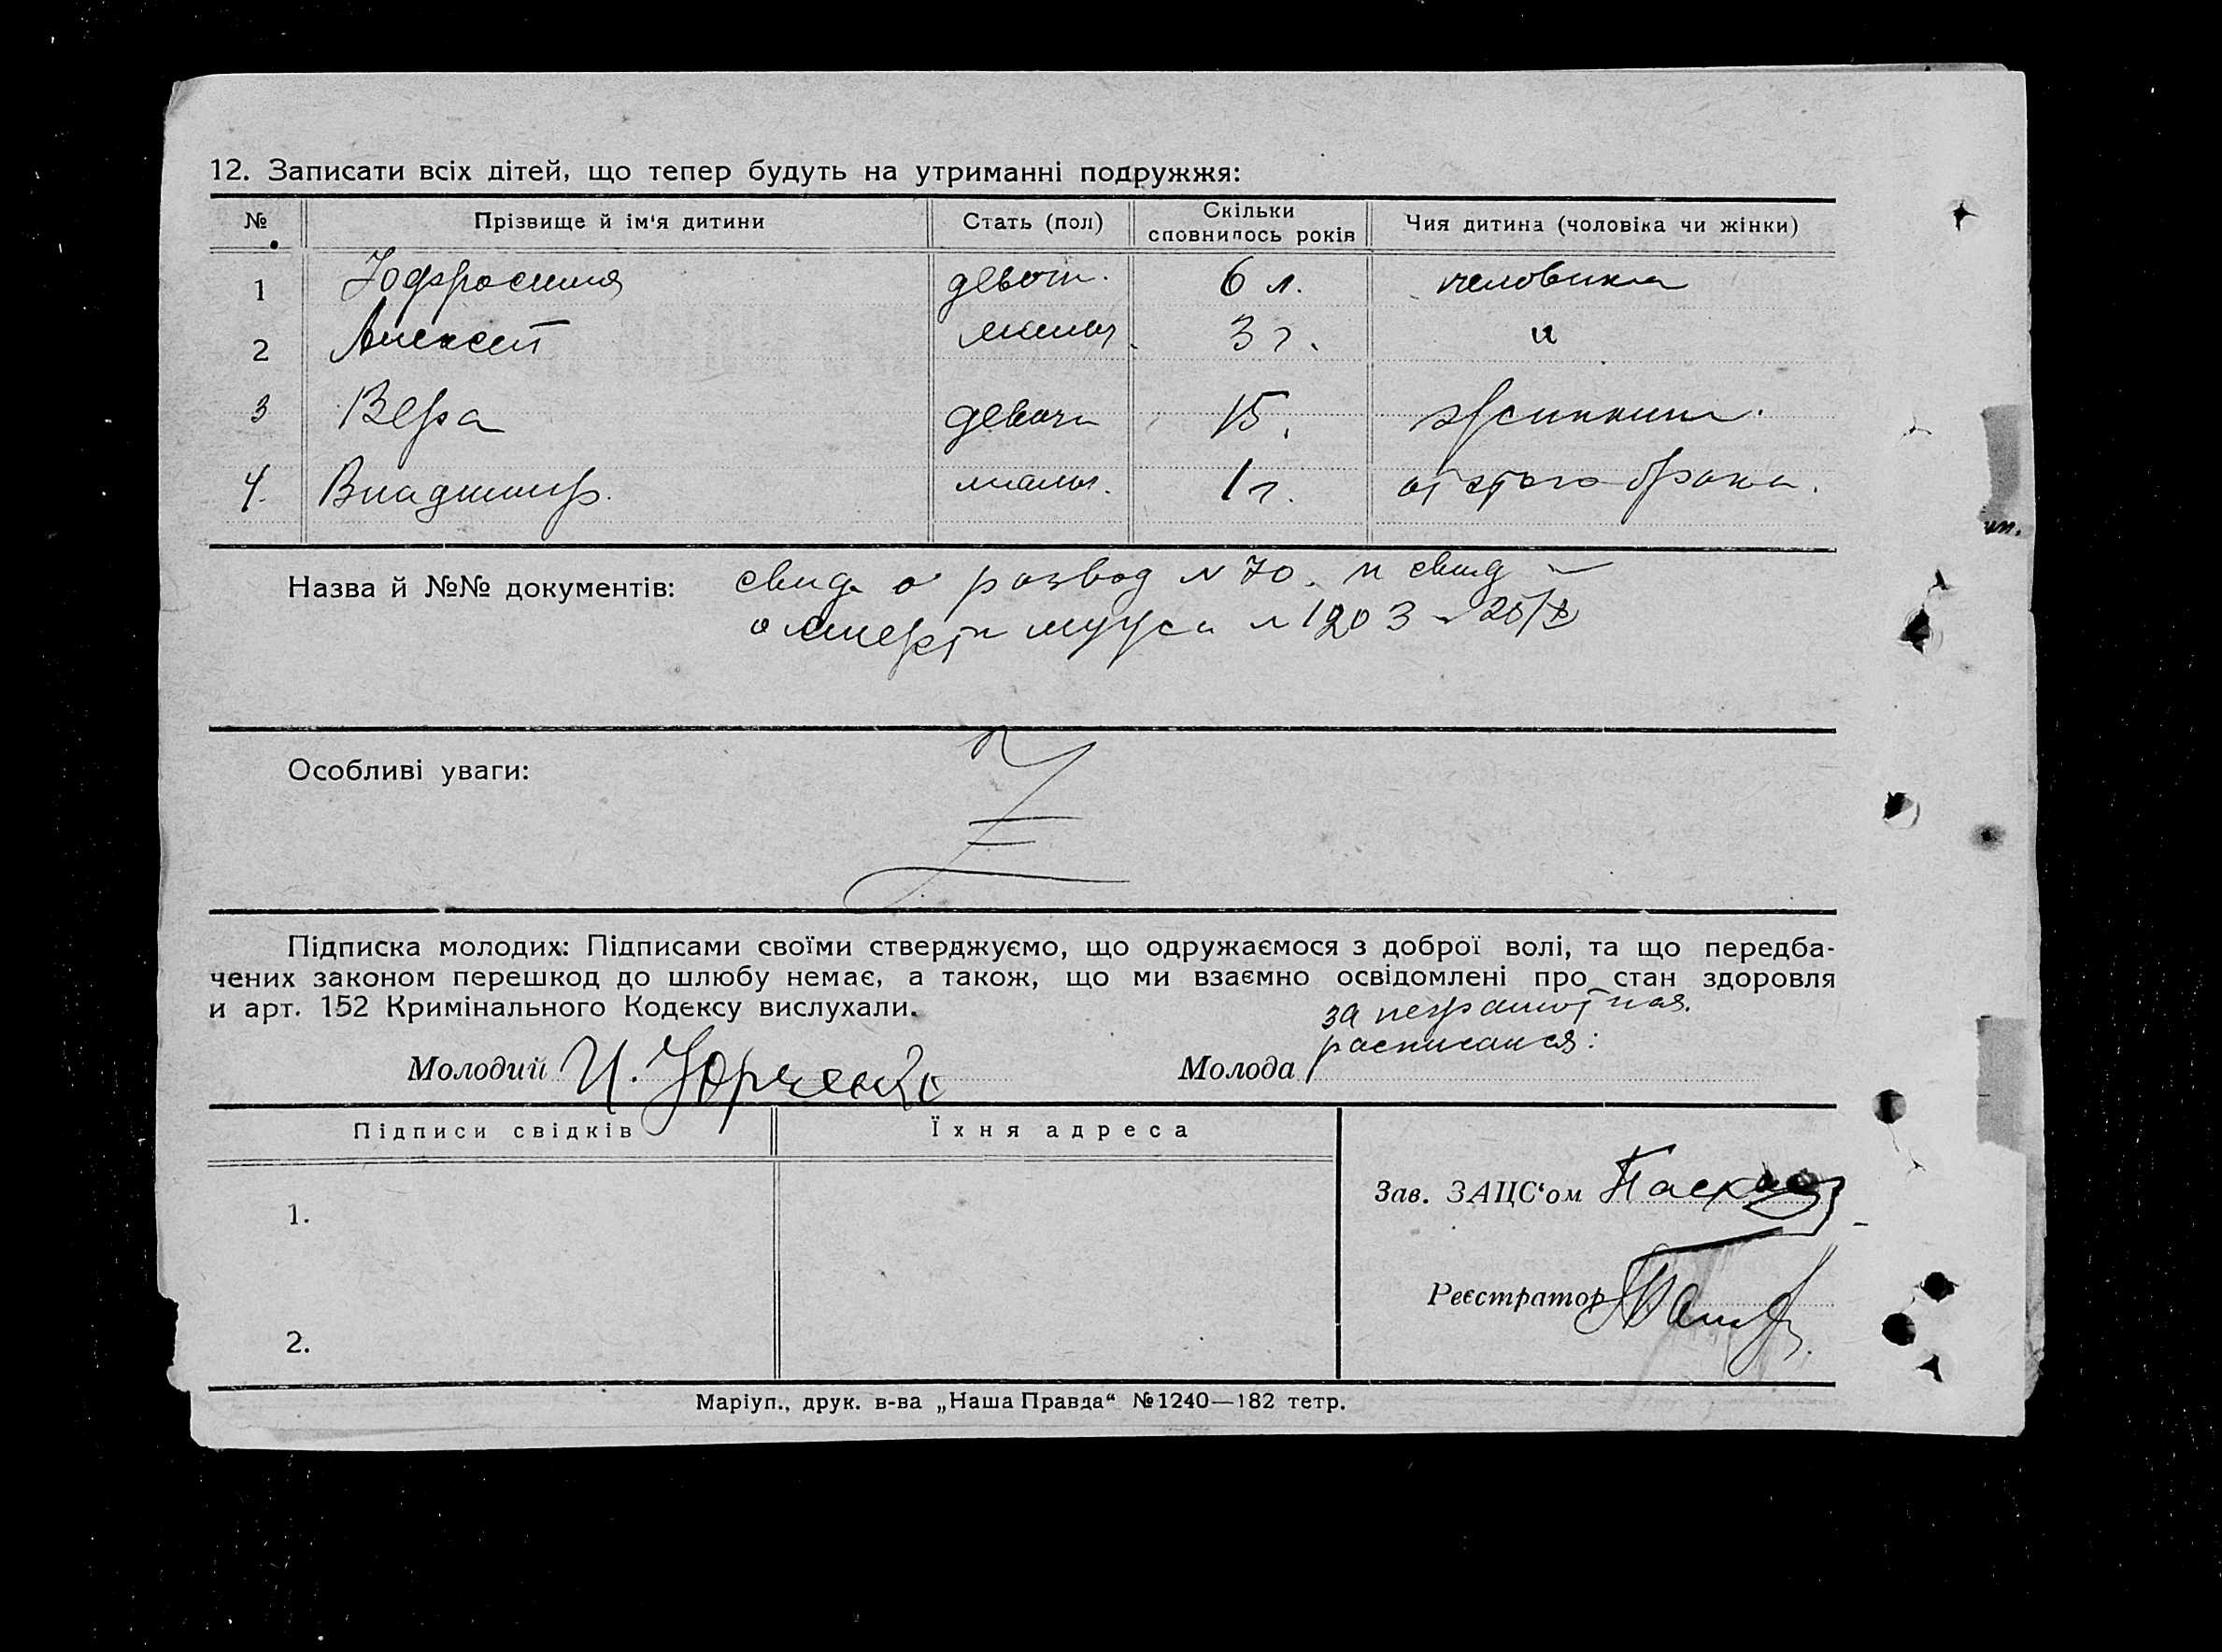 12. Записати всіх дітей, що тепер будуть на утриманні подружжя:
№ Прізвище й ім'я дитини Стать (пол) Скільки сповнилось років Чия дитина (чоловіка чи жінки)
1 Юфросиния девоч. 6 л. человика
2 Алексей мальч. 3 г. и
3 Вера девочк 15.
4. Владимир. мальч. 1 г. от этого брака.
Назва й №№ документів: свид о развод N 70. и свид
о смерти мужа N 1203
Особливі уваги:
Підписка молодих: Підписами своїми стверджуємо, що одружаємося з доброї волі, та що передба-
чених законом перешкод до шлюбу немає, а також, що ми взаємно освідомлені про стан здоровля
и арт. 152 Кримінального Кодексу вислухали.
за неграмотная
расписался:
Молодий И. Юрченко Молода
Підписи свідків Їхня адреса
Зав. ЗАЦС'ом
1.
Реєстратор
2.
Маріуп., друк. в-ва „Наша Правда“ №1240—182 тетр.